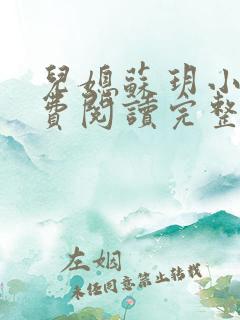 兒媳蘇玥小
費閱讀完整
左姻
未經同意禁止轉載